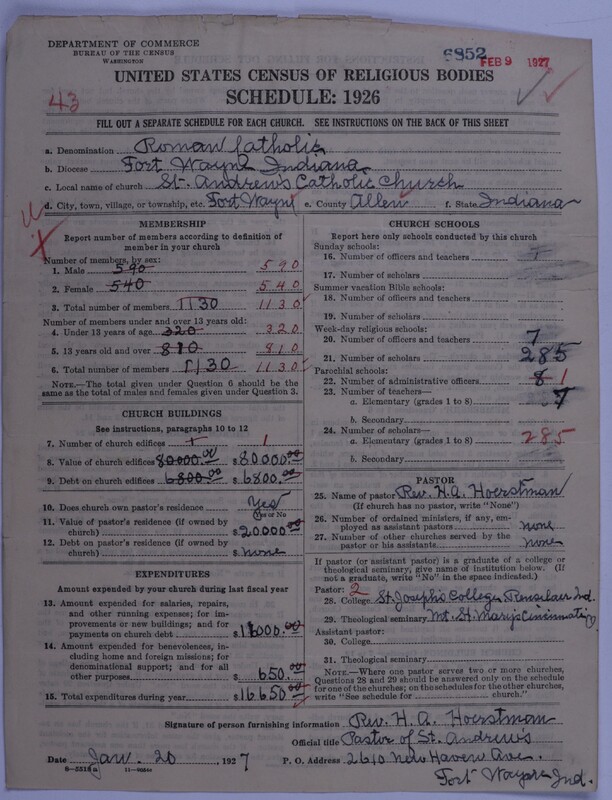 DEPARTMENT OF COMMERCE
BUREAU OF THE CENSUS
WASHINGTON
6852
FEB 9 1927
UNITED STATES CENSUS OF RELIGIOUS BODIES
SCHEDULE: 1926
43
FILL OUT A SEPARATE SCHEDULE FOR EACH CHURCH. SEE INSTRUCTIONS ON THE BACK OF THIS SHEET
a. Denomination Roman Catholic
b. Diocese Fort Wayne Indiana
c. Local name of church St. Andrew's Catholic Church
d. City, town, village, or township, etc. Fort Wayne e. County Allen f. State Indiana
MEMBERSHIP
Report number of members according to definition of
member in your church
Number of members, by sex:
1. Male 590 590
2. Female 540 540
3. Total number of members 1130 1130
Number of members under and over 13 years old:
4. Under 13 years of age 320 320
5. 13 years old and over 810 810
6. Total number of members 1130 1130
NOTE.—The total given under Question 6 should be
the same as the total of males and females given under Question 3.
CHURCH BUILDINGS
See instructions, paragraphs 10 to 12
7. Number of church edifices 1 1
8. Value of church edifices 80000.00 $ 80000.00
9. Debt on church edifices 6800.00 $ 6800.00
10. Does church own pastor's residence Yes
Yes or No
11. Value of pastor's residence (if owned by
church) $ 20000.00
12. Debt on pastor's residence (if owned by
church) $ none
EXPENDITURES
Amount expended by your church during last fiscal year
13. Amount expended for salaries, repairs,
and other running expenses; for im-
provements or new buildings; and for
payments on church debt $ 16000.00
14. Amount expended for benevolences, in-
cluding home and foreign missions; for
denominational support; and for all
other purposes $ 650.00
15. Total expenditures during year $ 16650.00
CHURCH SCHOOLS
Report here only schools conducted by this church
Sunday schools:
16. Number of officers and teachers
17. Number of scholars
Summer vacation Bible schools:
18. Number of officers and teachers
19. Number of scholars
Week-day religious schools:
20. Number of officers and teachers 7
21. Number of scholars 285
Parochial schools:
22. Number of administrative officers 8 1
23. Number of teachers—
a. Elementary (grades 1 to 8) 7
b. Secondary
24. Number of scholars—
a. Elementary (grades 1 to 8) 285
b. Secondary
PASTOR
25. Name of pastor Rev. H.A. Hoerstman
(If church has no pastor, write "None")
26. Number of ordained ministers, if any, em-
ployed as assistant pastors none
27. Number of other churches served by the
pastor or his assistants none
If pastor (or assistant pastor) is a graduate of a college or
theological seminary, give name of institution below. (If
not a graduate, write "No" in the space indicated.)
Pastor: 2
28. College St. Joseph's College Rensselaer Ind.
29. Theological seminary Mt. St. Mary's Cincinnati O
Assistant pastor:
30. College
31. Theological seminary
NOTE.—Where one pastor serves two or more churches,
Questions 28 and 29 should be answered only on the schedule
for one of the churches; on the schedules for the other churches,
write "See schedule for church."
Signature of person furnishing information Rev. H. A. Hoerstman
Official title Pastor of St. Andrew's
Date Jan. 20, 1927 P. O. Address 2610 New Haven Ave.
Fort Wayne Ind.